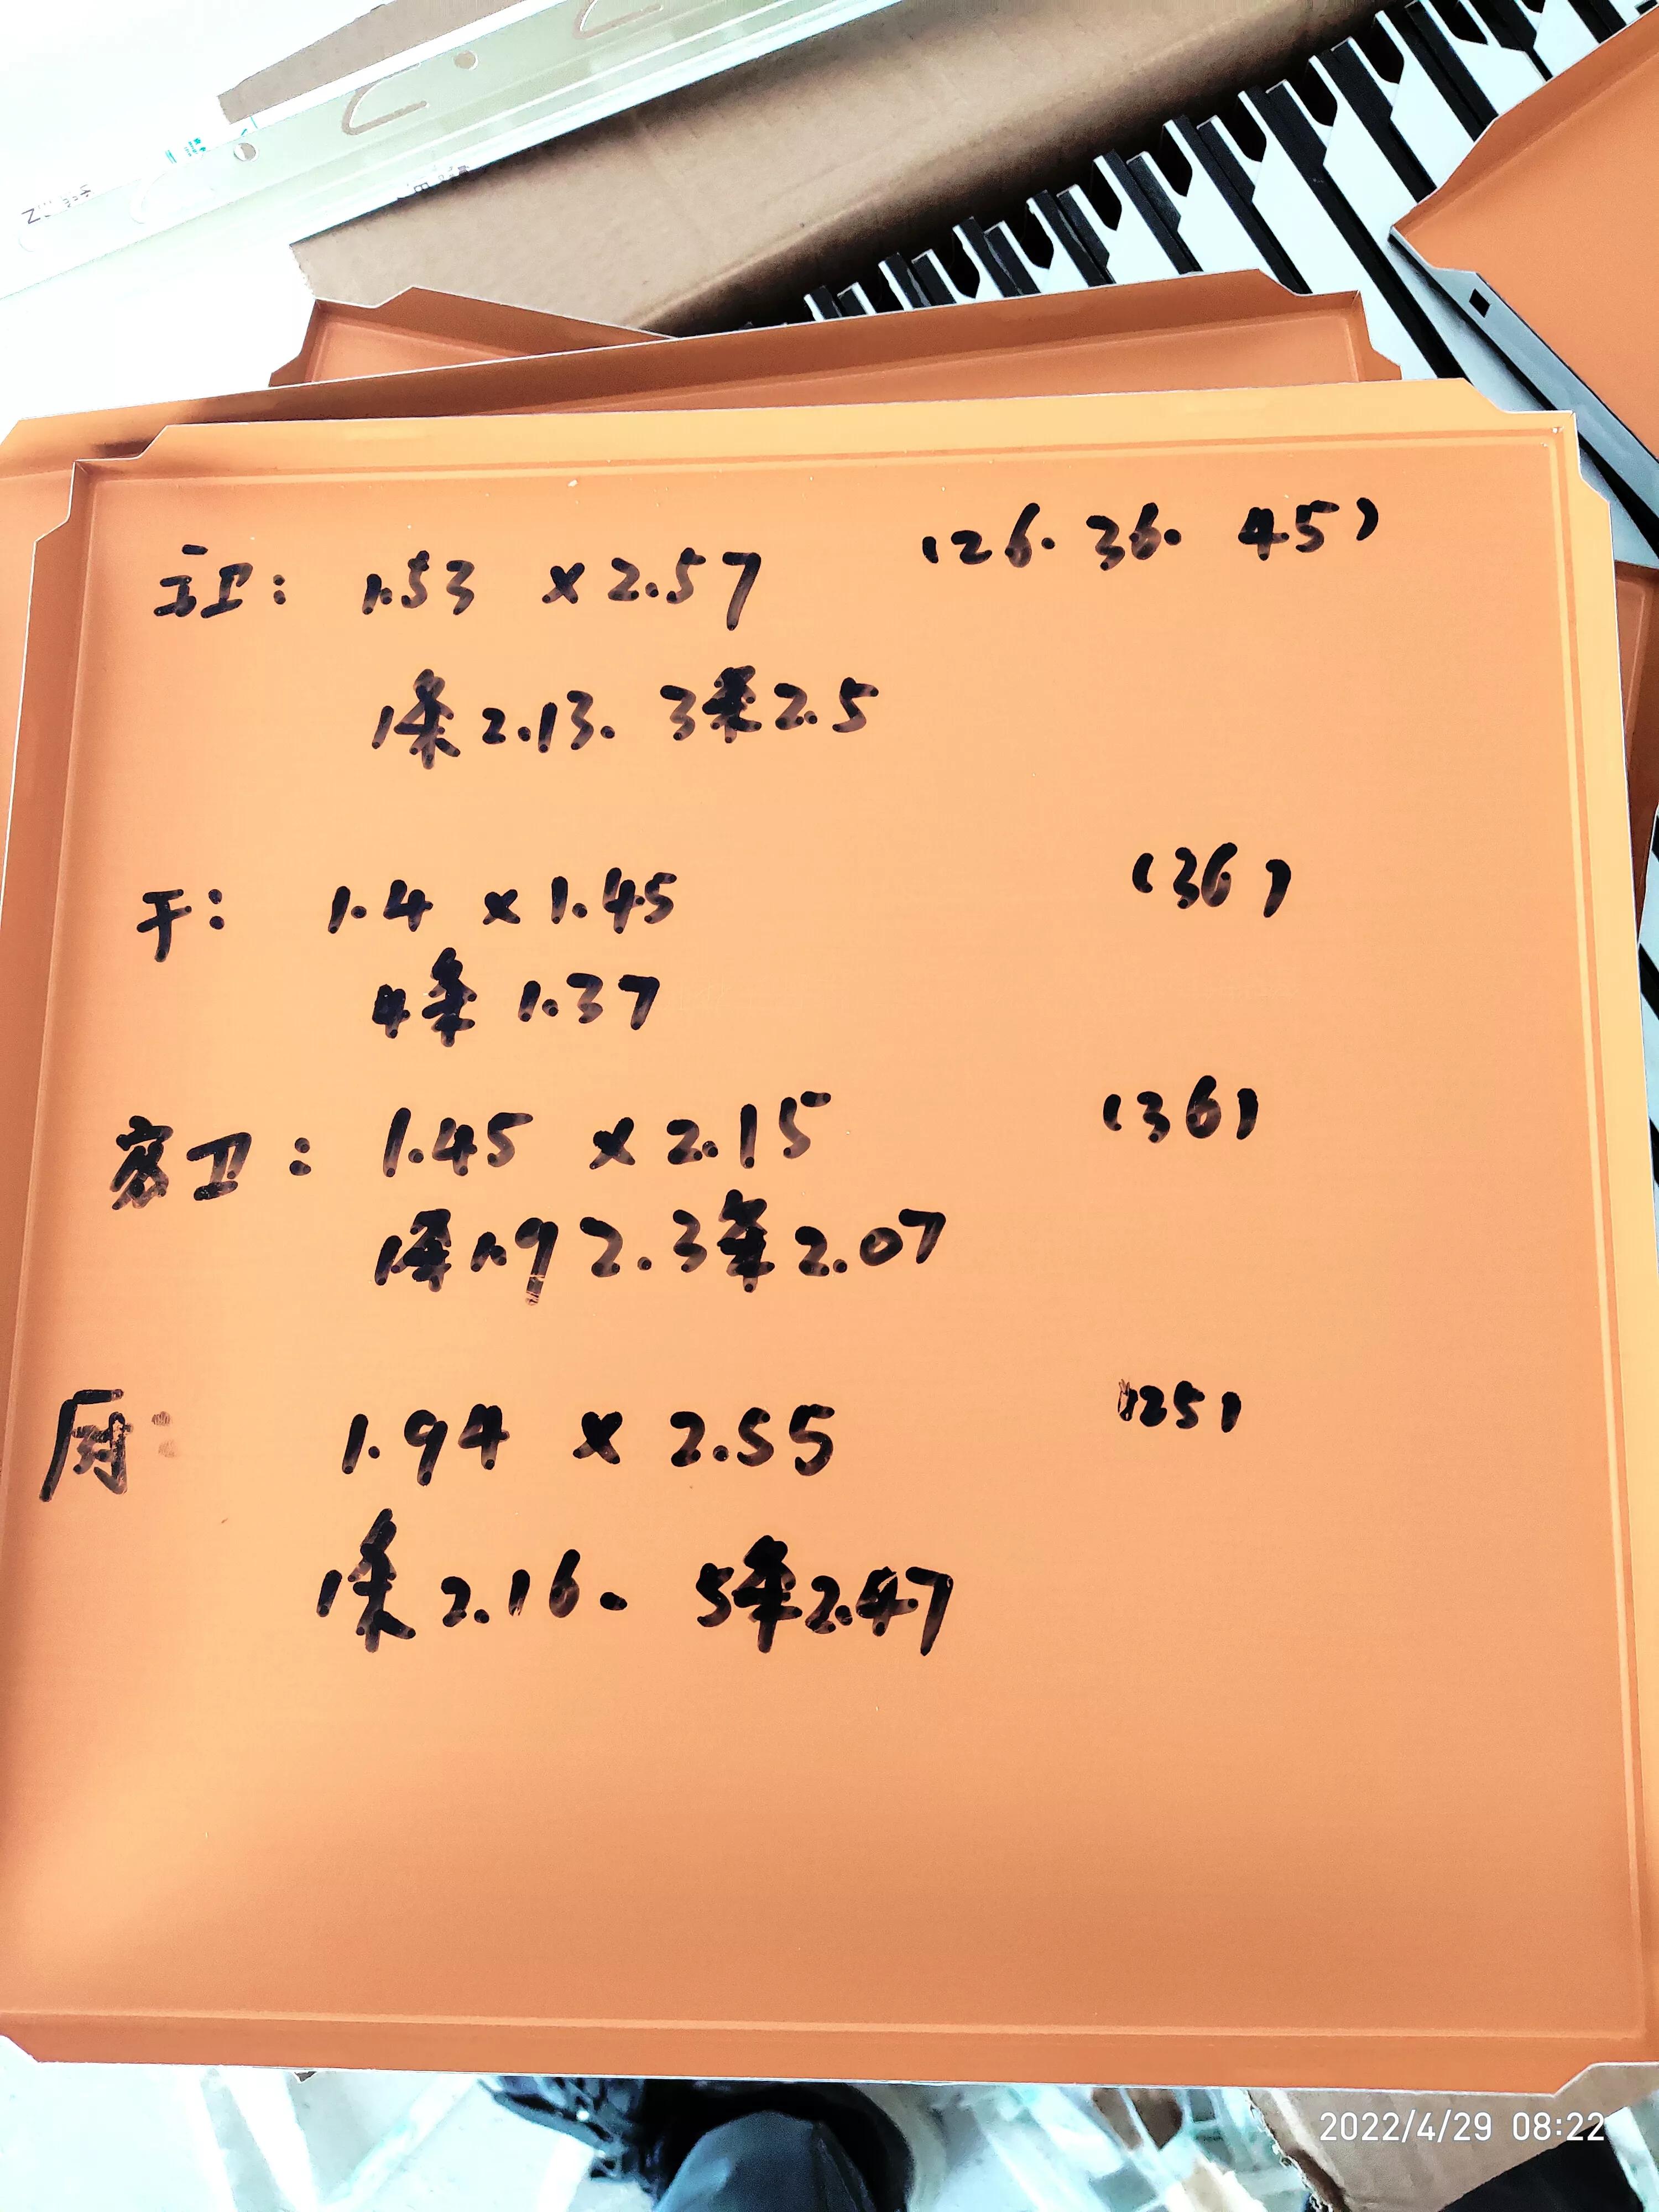 主卫: 1.53 × 2.57 (26. 36. 45)
1条2.13. 3条2.5
干: 1.4 × 1.45 (36)
4条 1.37
客卫: 1.45 × 2.15 (36)
1条1.92. 3条2.07
厨: 1.94 × 2.55 (25)
1条2.16. 5条2.47
2022/4/29 08:22